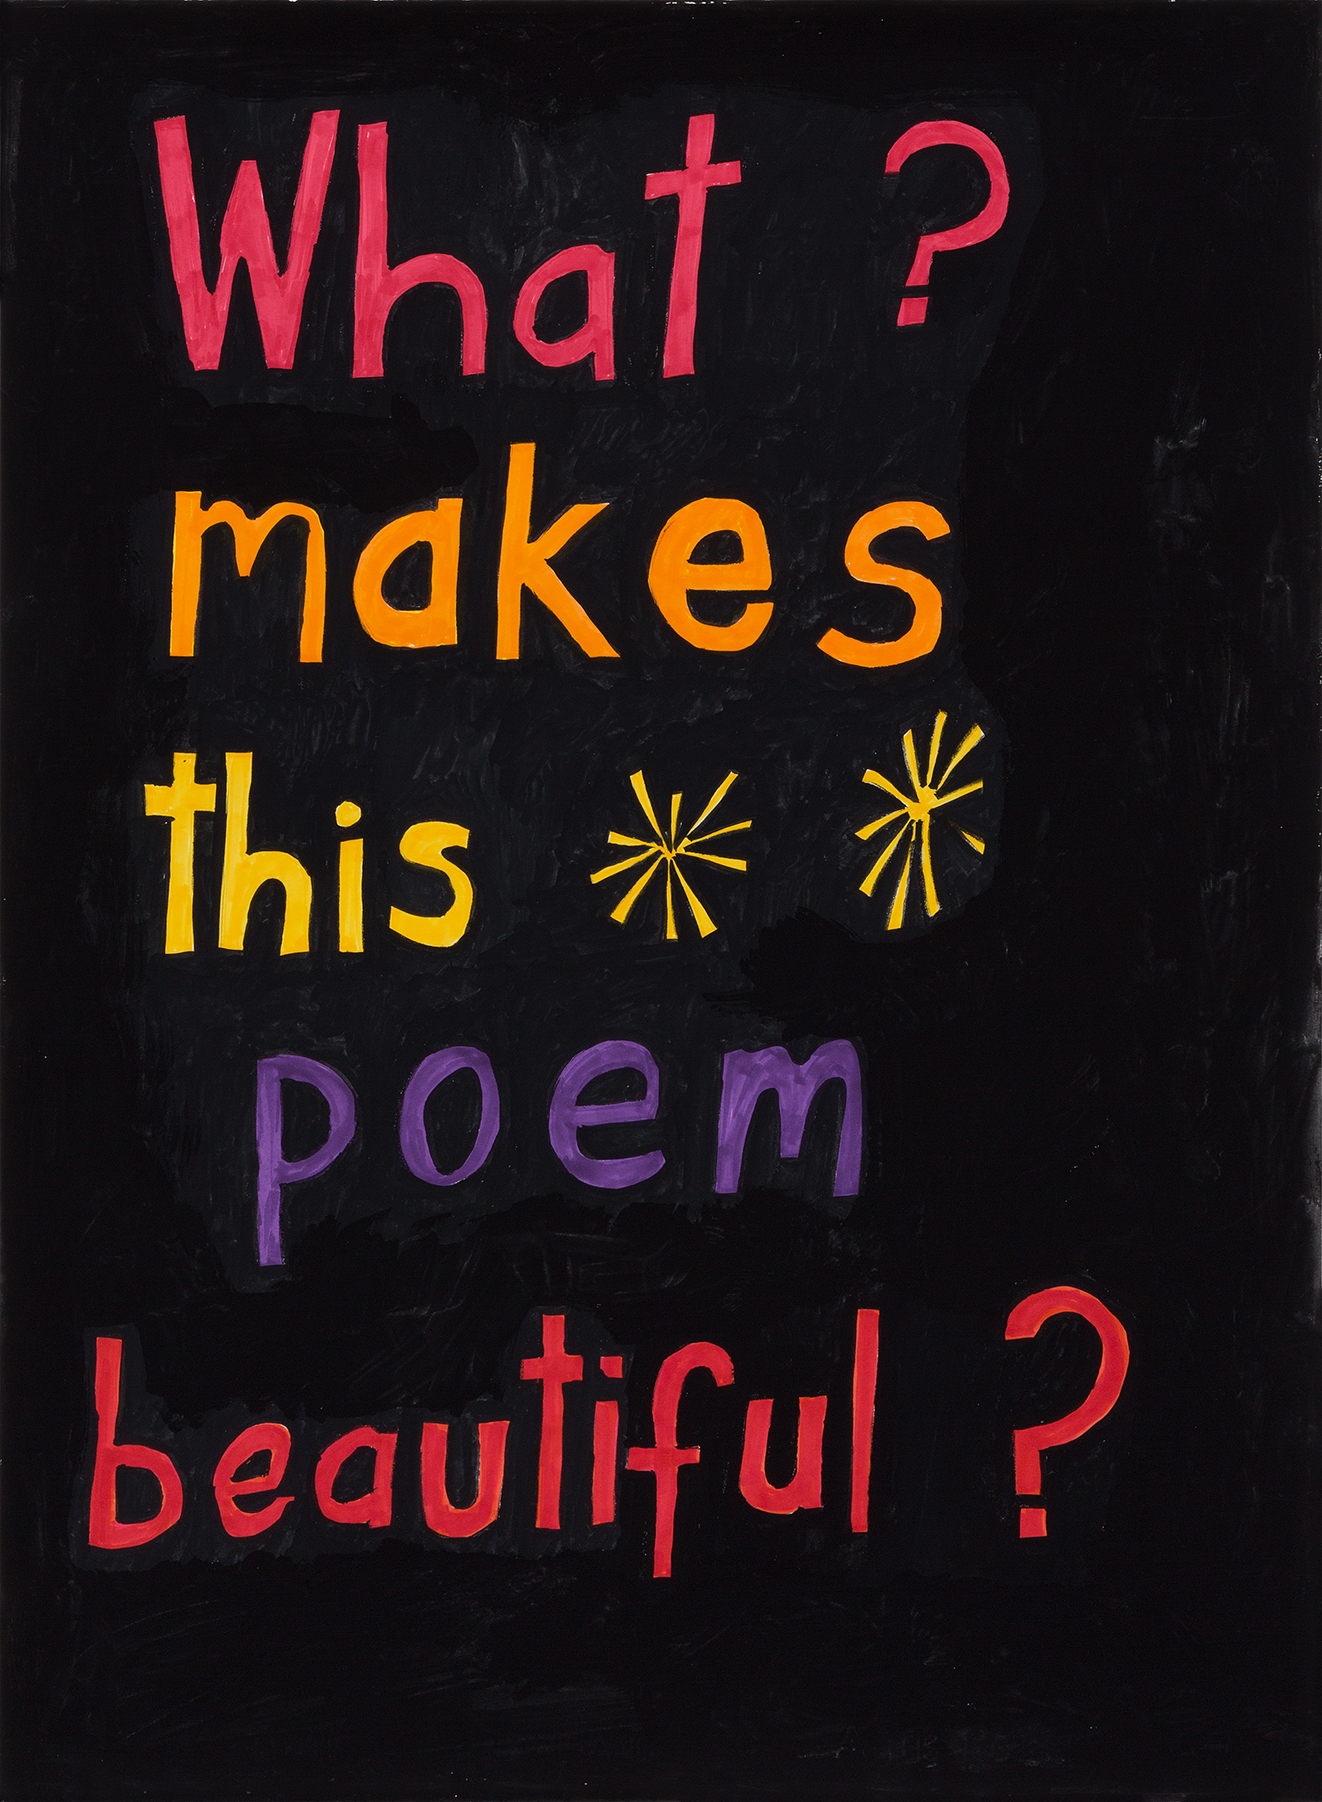 What ?
makes
this * *
poem
beautiful ?